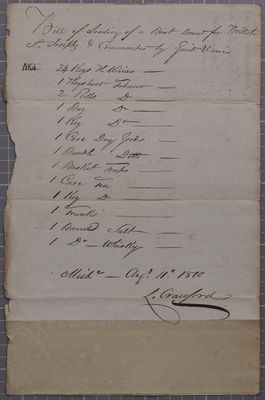 Bill of Loading of a Boat bound for British
St. Josephs & Commanded by
24 Kegs H. Wines —
1 Hogshead Tobacco —
2 Rolls Do —
1 Bag Do —
1 Keg Do —
1 Case Dry Goods —
1 Bundle Ditto —
1 Basket Traps —
1 Case Tea —
1 Keg Do —
1 Trunk —
1 Barrel Salt —
1 Do — Whisky —
Michc — Augt. 11th 1810
L. Crawford